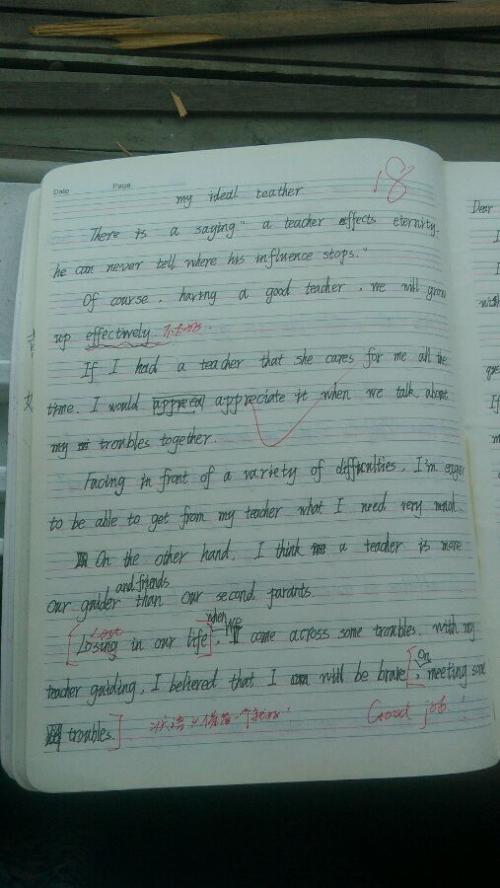 Date Page
my ideal teather
18
There is a saying " a teacher effects eternity.
he can never tell where his influence stops."
Of course, having a good teacher, we will grow
up effectively
If I had a teacher that she cares for me all the
time. I would appreciate it when we talk about
my troubles together.
Facing in front of a variety of difficulties, I'm eager
to be able to get from my teacher what I need very much.
On the other hand, I think a teacher is more
and friends
our guider than our second parants.
Lost when we
[Losing in our life], I come across some troubles, with my
teacher guiding, I believed that I will be brave [on, meeting some
troubles.]
Good job!
Dear
I
I
with
If